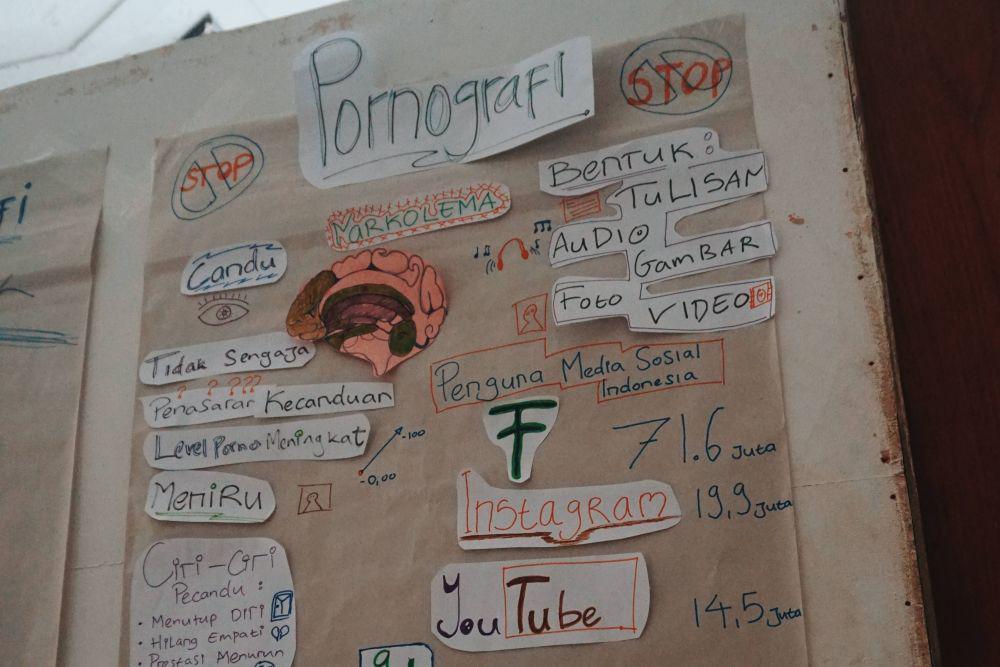 Pornografi
STOP
STOP
NARKOLEMA
Candu
BENTUK :
TULISAN
AUDIO
GAMBAR
FOTO
VIDEO
Tidak Sengaja
? ? ???
Penasaran Kecanduan
Level Porno Meningkat
-100
-0,00
MENIRU
Ciri-Ciri
Pecandu :
• Menutup DIRI
• Hilang Empati
• Prestasi Menurun
Penguna Media Sosial
Indonesia
F 71.6 Juta
Instagram 19,9 Juta
YouTube 14,5 Juta